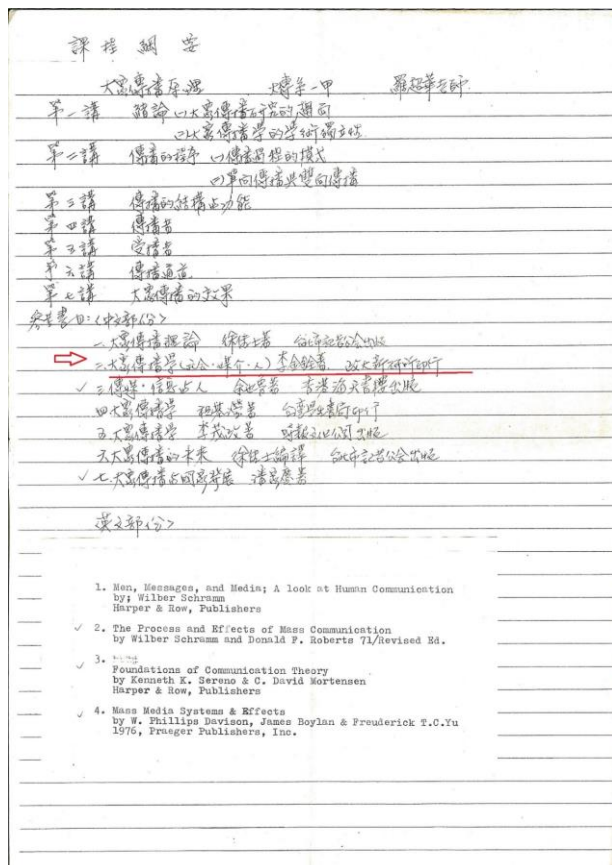 課程綱要
大眾傳播原理 大傳系一甲 羅超華老師
第一講 緒論 (一)大眾傳播研究的趨向
(二)大眾傳播學的學術獨立性
第二講 傳播的程序 (一)傳播過程的模式
(二)單向傳播與雙向傳播
第三講 傳播的結構与功能
第四講 傳播者
第五講 受播者
第六講 傳播通道
第七講 大眾傳播的效果
參考書目:〈中文部份〉
一.大眾傳播理論 徐佳士著 台北市記者公会出版
二.大眾傳播學(社会·媒介·人) 李金銓著 政大新研所印行
✓ 三.傳媒·信息与人 余也魯著 香港海天書樓出版
四.大眾傳播學 著 台湾学生書局印行
五.大眾傳播學 李茂政著 時報文化公司出版
六.大眾傳播的未來 徐佳士編譯 台北市記者公会出版
✓ 七.大眾傳播与國家發展 潘家慶著
英文部份〉
1. Men, Messages, and Media; A look at Human Communication
by; Wilber Schramm
Harper & Row, Publishers
✓ 2. The Process and Effects of Mass Communication
by Wilber Schramm and Donald F. Roberts 71/Revised Ed.
✓ 3.
Foundations of Communication Theory
by Kenneth K. Sereno & C. David Mortensen
Harper & Row, Publishers
✓ 4. Mass Media Systems & Effects
by W. Phillips Davison, James Boylan & Freuderick T.C.Yu
1976, Praeger Publishers, Inc.